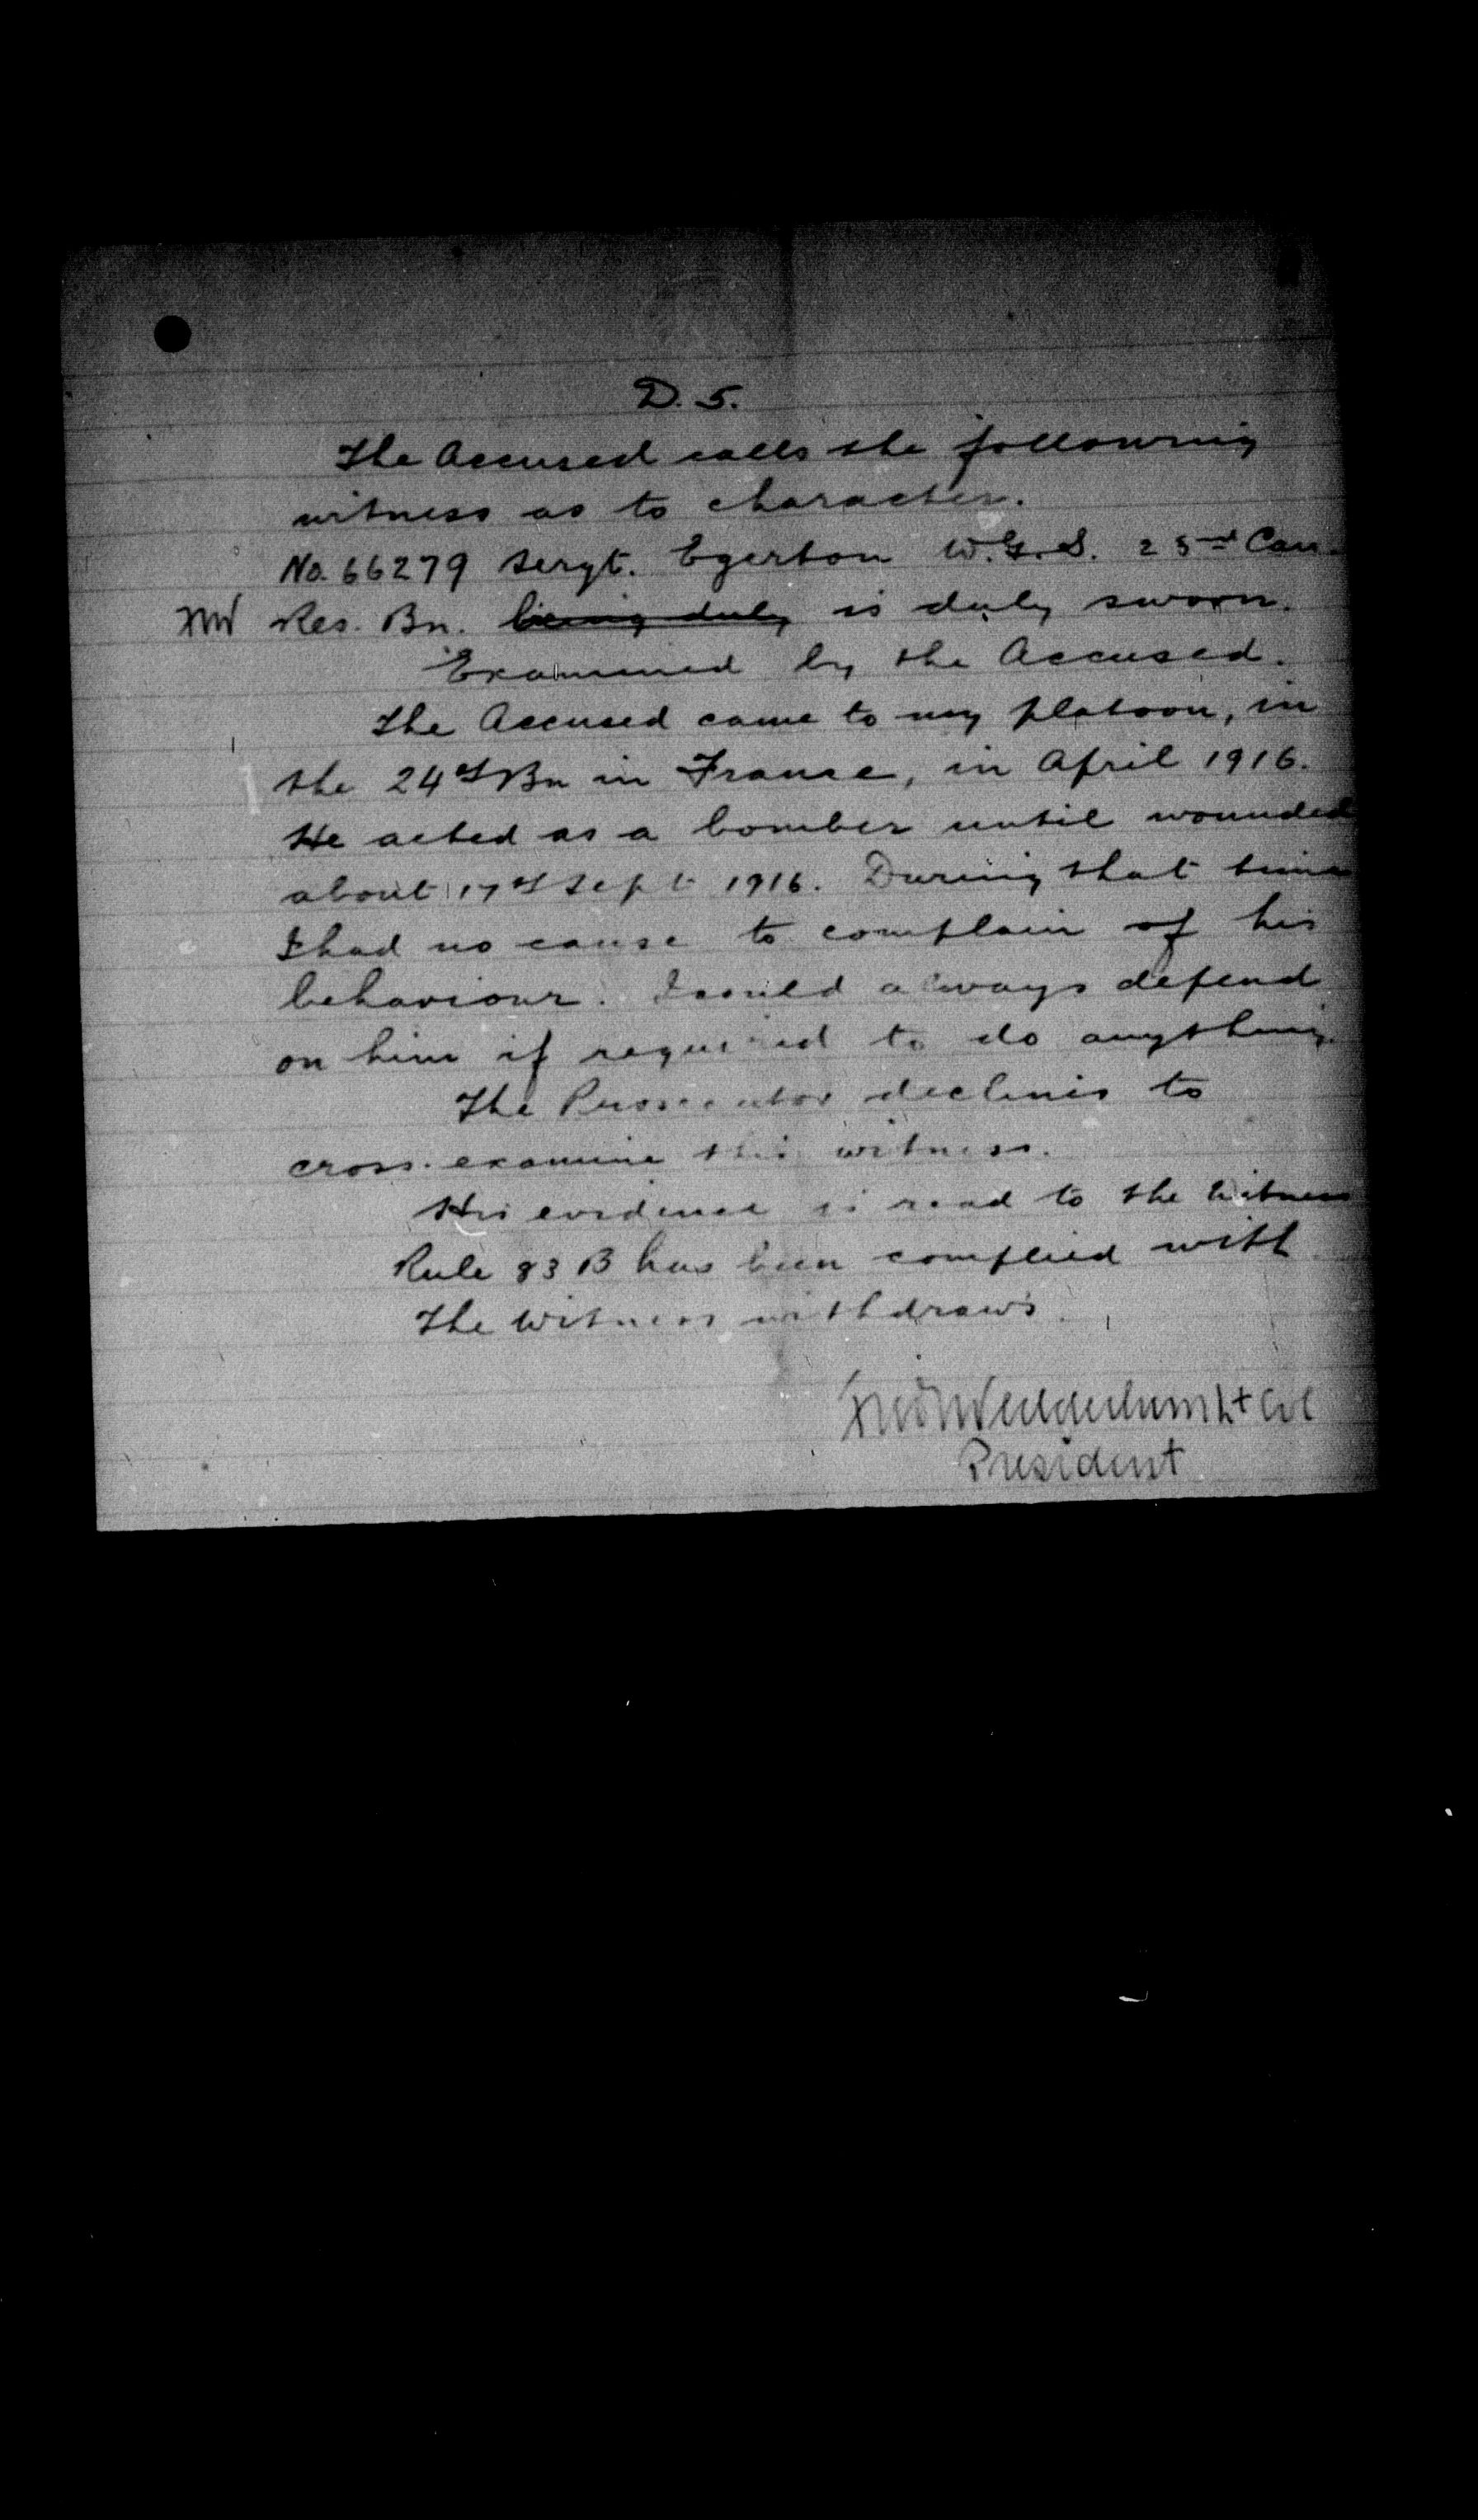 D. 5.
The Accused calls the following
witness as to character.
No. 66279 Sergt. Egerton W.G.S. 23rd Can.
Res. Bn. being duly is duly sworn.
Examined by the Accused.
The Accused came to my platoon, in
the 24th Bn in France, in April 1916.
He acted as a bomber until wounded
about 17th Sept 1916. During that time
I had no cause to complain of his
behaviour. I could always depend
on him if required to do anything.
The Prosecutor declines to
cross-examine this witness.
His evidence is read to the witness
Rule 83 B has been complied with
The witness withdraws.
Lt Col
President